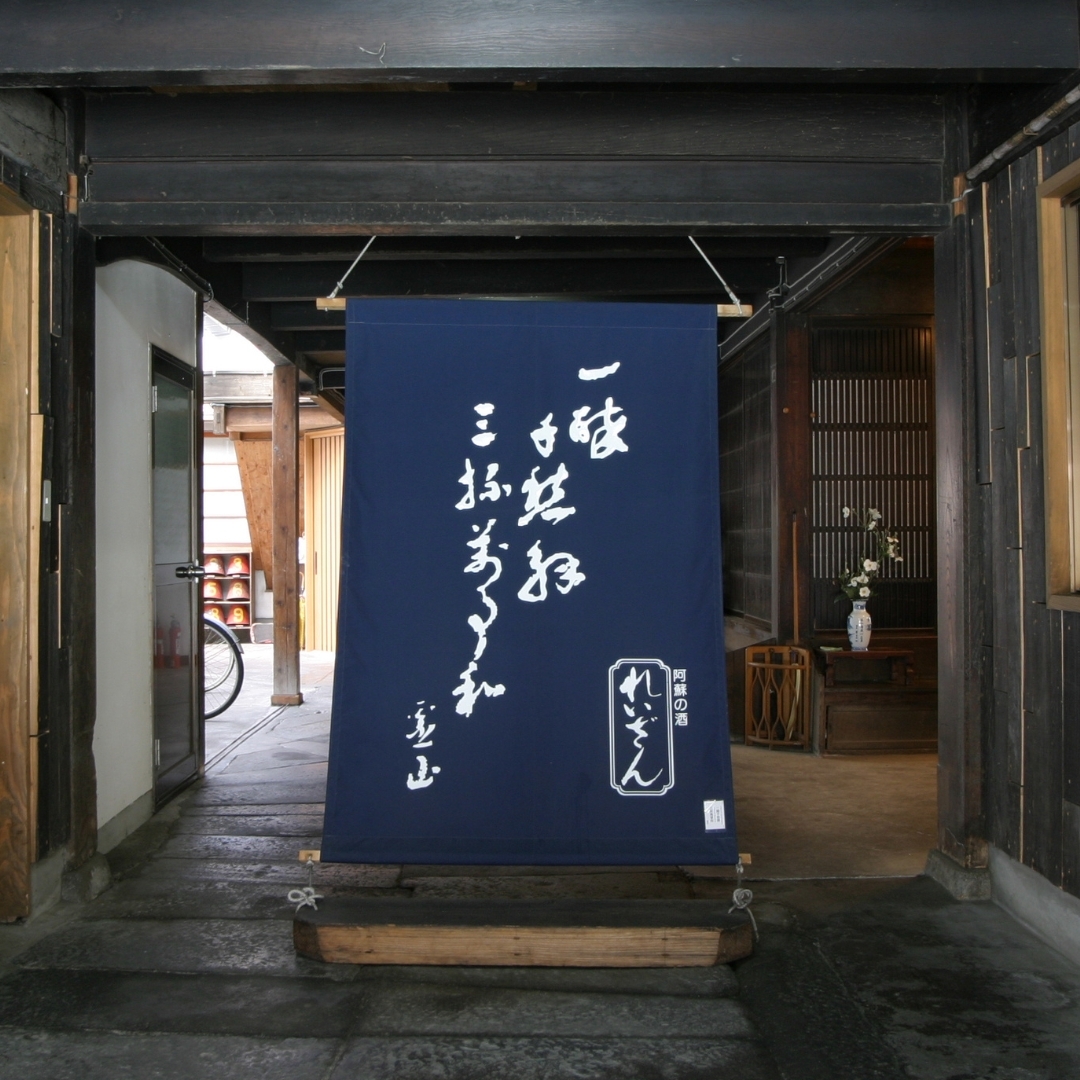 一酔
千愁解
三杯萬事和
霊山
阿蘇の酒
れいざん